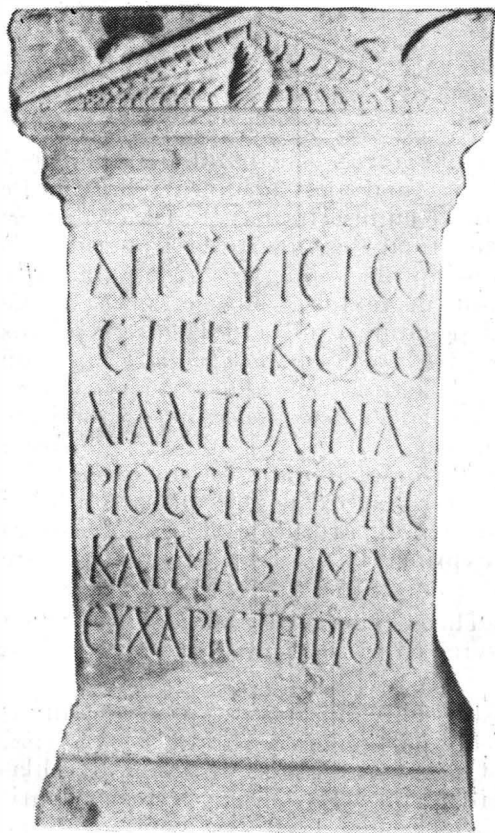 ΔΙΙΫΨΙϹΤΩ
ΕΠΗΚΟΩ
ΑΙΛ·ΑΠΟΛΙΝΑ
ΡΙΟϹΕΠΙΤΡΟΠϹ
ΚΑΙ·ΜΑΞΙΜΑ
ΕΥΧΑΡΙϹΤΗΡΙΟΝ